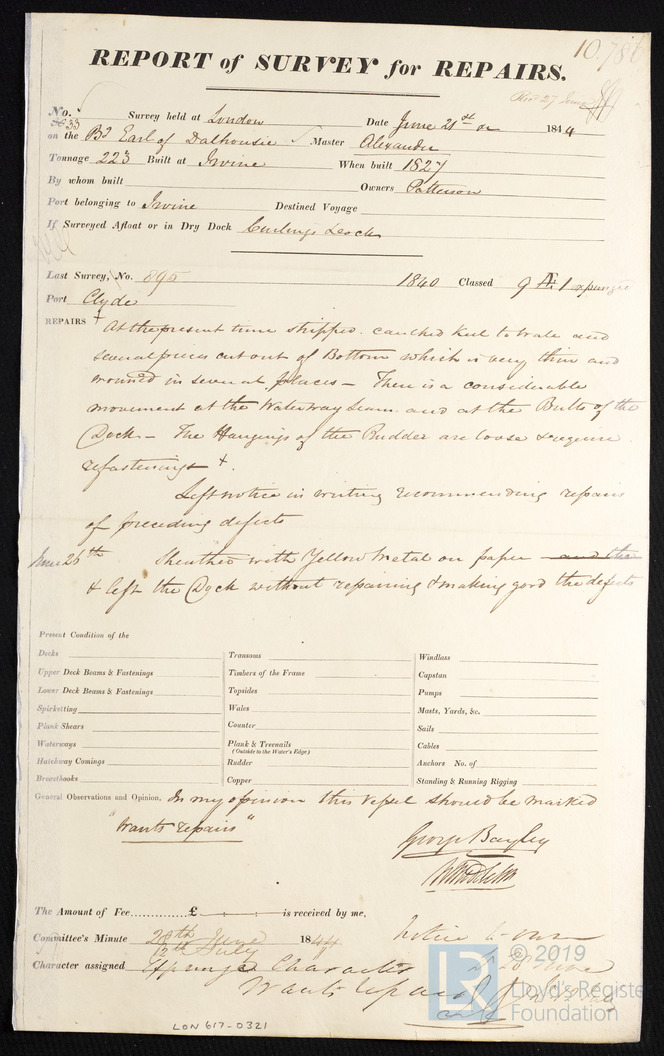 10,786
REPORT of SURVEY for REPAIRS.
Rec 27 June
No. 33 Survey held at London Date June 21st 1844
on the Bg Earl of Dalhousie Master Alexander
Tonnage 223 Built at Irvine When built 1827
By whom built Owners Patterson
Port belonging to Irvine Destined Voyage
If Surveyed Afloat or in Dry Dock Curlings Dock
Last Survey, No. 895 1840 Classed 9 Æ 1 expunged
Port Clyde
REPAIRS + At the present time stripped. caulked Keel to Wale and
several pieces cut out of Bottom which is very thin and
wormed in several places – There is a considerable
movement at the Waterway Seam and at the Butts of the
Deck – The Hangings of the Rudder are loose & require
refastenings +.
Left notice in writing recommending repairs
of preceding defects
June 26th Sheathed with Yellow Metal on paper and then
& left the Dock without repairing & making good the defects
Present Condition of the
Decks Transoms Windlass
Upper Deck Beams & Fastenings Timbers of the Frame Capstan
Lower Deck Beams & Fastenings Topsides Pumps
Spirketting Wales Masts, Yards, &c.
Plank Shears Counter Sails
Waterways Plank & Treenails (Outside to the Water's Edge) Cables
Hatchway Comings Rudder Anchors No. of
Breasthooks Copper Standing & Running Rigging
General Observations and Opinion, In my opinion this Vessel should be marked
"Wants repairs"
George Bayley
The Amount of Fee............£ is received by me,
Committee's Minute 28th June 1844
12th July
Character assigned Expunge Character
Wants repair
notice
28 June
© 2019
LR Lloyd's Register
Foundation
LON 617-0321